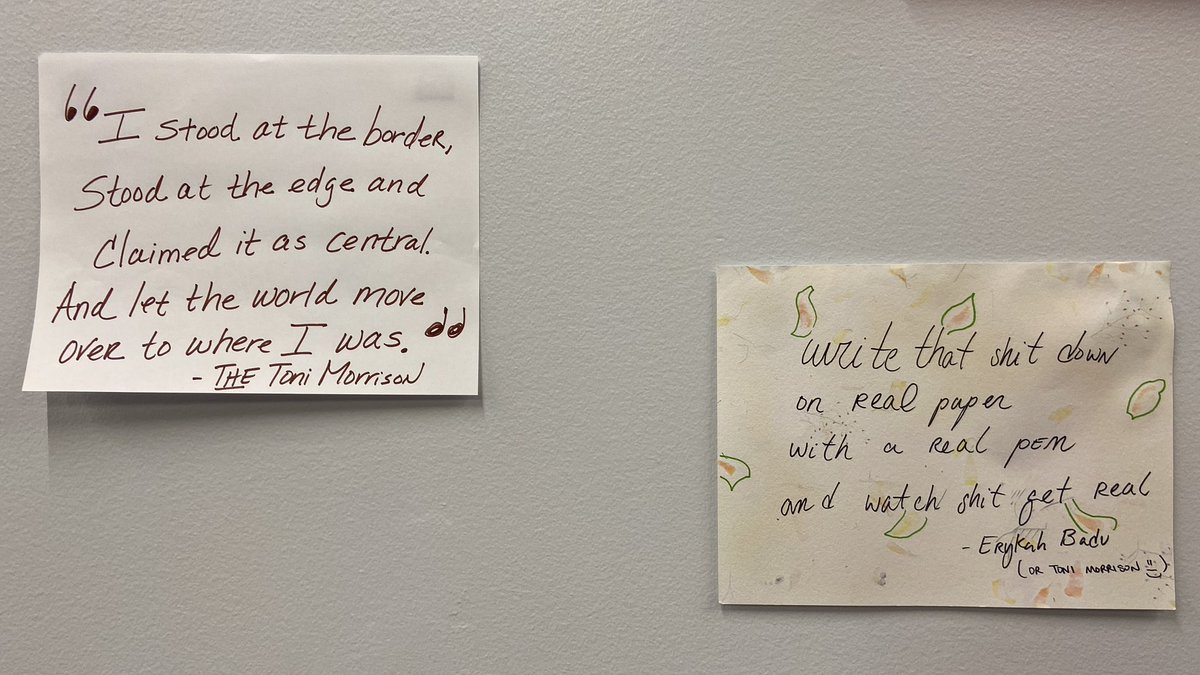 “I stood at the border,
Stood at the edge and
Claimed it as central.
And let the world move
over to where I was.”
- THE Toni Morrison
write that shit down
on real paper
with a real pen
and watch shit get real
- Erykah Badu
(OR TONI MORRISON !!)